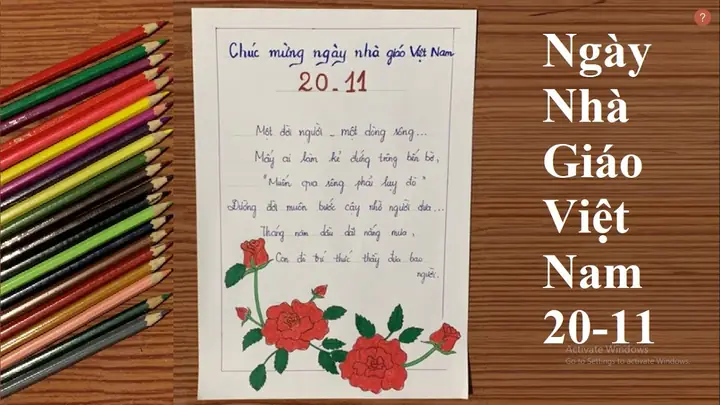 Chúc mừng ngày nhà giáo Việt Nam
20-11
Một đời người - một dòng sông...
Mấy ai làm kẻ đứng trông bến bờ,
"Muốn qua sông phải lụy đò"
Đường đời muôn bước cậy nhờ người đưa...
Tháng năm dầu dãi nắng mưa,
Con đò trí thức thầy đưa bao
người.
Ngày
Nhà
Giáo
Việt
Nam
20-11
Activate Windows
Go to Settings to activate Windows.
?